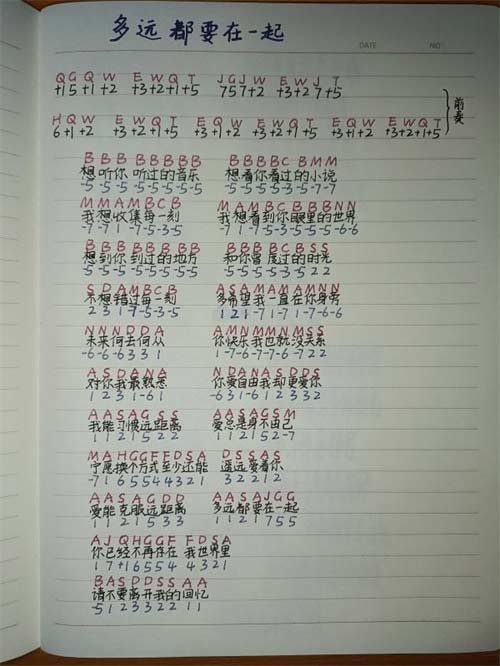 多远都要在一起
DATE NO
Q G Q W E W Q T J G J W E W J T
+1 5 +1 +2 +3 +2 +1 +5 7 5 7 +2 +3 +2 7 +5
前奏
H Q W E W Q T E Q W E W Q T E Q W E W Q T
6 +1 +2 +3 +2 +1 +5 +3 +1 +2 +3 +2 +1 +5 +3 +1 +2 +3 +2 +1 +5
B B B B B B B B B B B B C B M M
想听你 听过的音乐 想看你看过的小说
-5 -5 -5 -5 -5 -5 -5 -5 -5 -5 -5 -5 -3 -5 -7 -7
M M A M B C B M A M B C B B B N N
我想收集每一刻 我想看到你眼里的世界
-7 -7 1 -7 -5 -3 -5 -7 1 -7 -5 -3 -5 -5 -5 -6 -6
B B B B B B B B B B B B C B S S
想到你 到过的地方 和你曾度过的时光
-5 -5 -5 -5 -5 -5 -5 -5 -5 -5 -5 -5 -3 -5 2 2
S D A M B C B A S A M A M A M N N
不想错过每一刻 多希望我一直在你身旁
2 3 1 -7 -5 -3 -5 1 2 1 -7 1 -7 1 -7 -6 -6
N N N D D A A M N M M N M S S
未来何去何从 你快乐我也就没关系
-6 -6 -6 3 3 1 1 -7 -6 -7 -7 -6 -7 2 2
A S D A N A N D A N A S D D S
对你我最熟悉 你爱自由我却更爱你
1 2 3 1 -6 1 -6 3 1 -6 1 2 3 3 2
A A S A G S S A A S A G S M
我能习惯远距离 爱总是身不由己
1 1 2 1 5 2 2 1 1 2 1 5 2 -7
M A H G G F F D S A D S S A S
宁愿换个方式至少还能 遥远爱着你
-7 1 6 5 5 4 4 3 2 1 3 2 2 1 2
A A S A G D D A A S A J G G
爱能克服远距离 多远都要在一起
1 1 2 1 5 3 3 1 1 2 1 7 5 5
A J Q H G G F F D S A
你已经不再存在 我世界里
1 7 +1 6 5 5 4 4 3 2 1
B A S D D S S A A
请不要离开我的回忆
-5 1 2 3 3 2 2 1 1